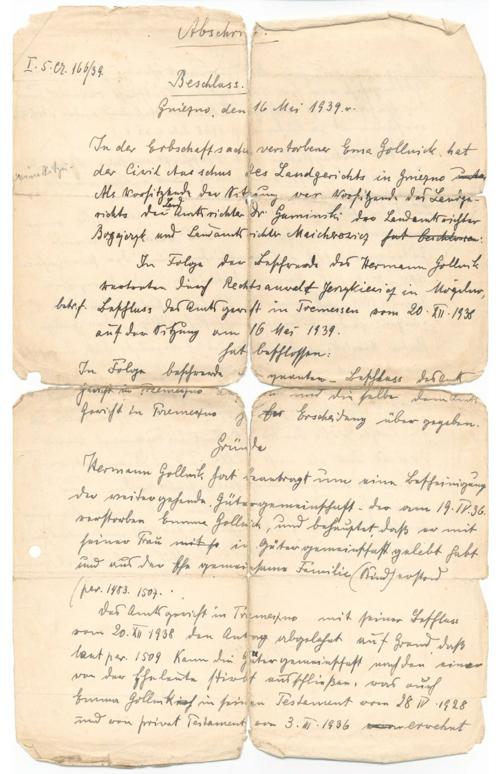 Abschri
I. 5. Cz. 166/39.
Beschluss.
Gniezno, den 16 Mei 1939. r.
In der Erbschaftssache verstorbener Ema Gollnick hat
der Civil Ausschus des Landgerichts in Gniezno
Als Vorsitzende der Sitzung der Vorsitzende des Landge-
richts die Land Amtsrichter Dr Gaminski dro Landamtsrichter
und Landamtsrichter hat beschlossen:
In Folge der Beschwerde des Hermann Gollnik
vertreten durch Rechtsanwalt in Mogilno,
betrf. Beschluss des Amtsgericht in Tremessen vom 20. XII. 1938
auf der Sitzung am 16 Mei 1939.
hat beschlossen:
In Folge Beschluss des Amts
Gericht in Tremezno und die selbe dem
Gericht in Tremezno zur Erscheidung über gegeben.
Gründe
Hermann Gollnik hat beantragt um eine Bescheinigung
der weitergehende Gütergemeinschaft der am 19. IV. 36.
verstorben Emma Gollnick, und behauptet daß er mit
seiner Frau in Gütergemeinschaft gelebt habt
und aus der Ehe gemeinsame Familie (Kind) erstand
(par. 1483. 1507.
Das Amtsgericht in Tremezno mit seiner Beschluss
vom 20. XII 1938 den Antrag abgelehnt auf Grund, daß
laut par. 1509 Kann die Gütergemeinschaft nach den einer
von der Eheleute stirbt ausschließen, was auch
Emma Gollnick in seinen Testament vom 28 IV. 1928
und von privat Testament vom 3. III. 1936 erwehnt